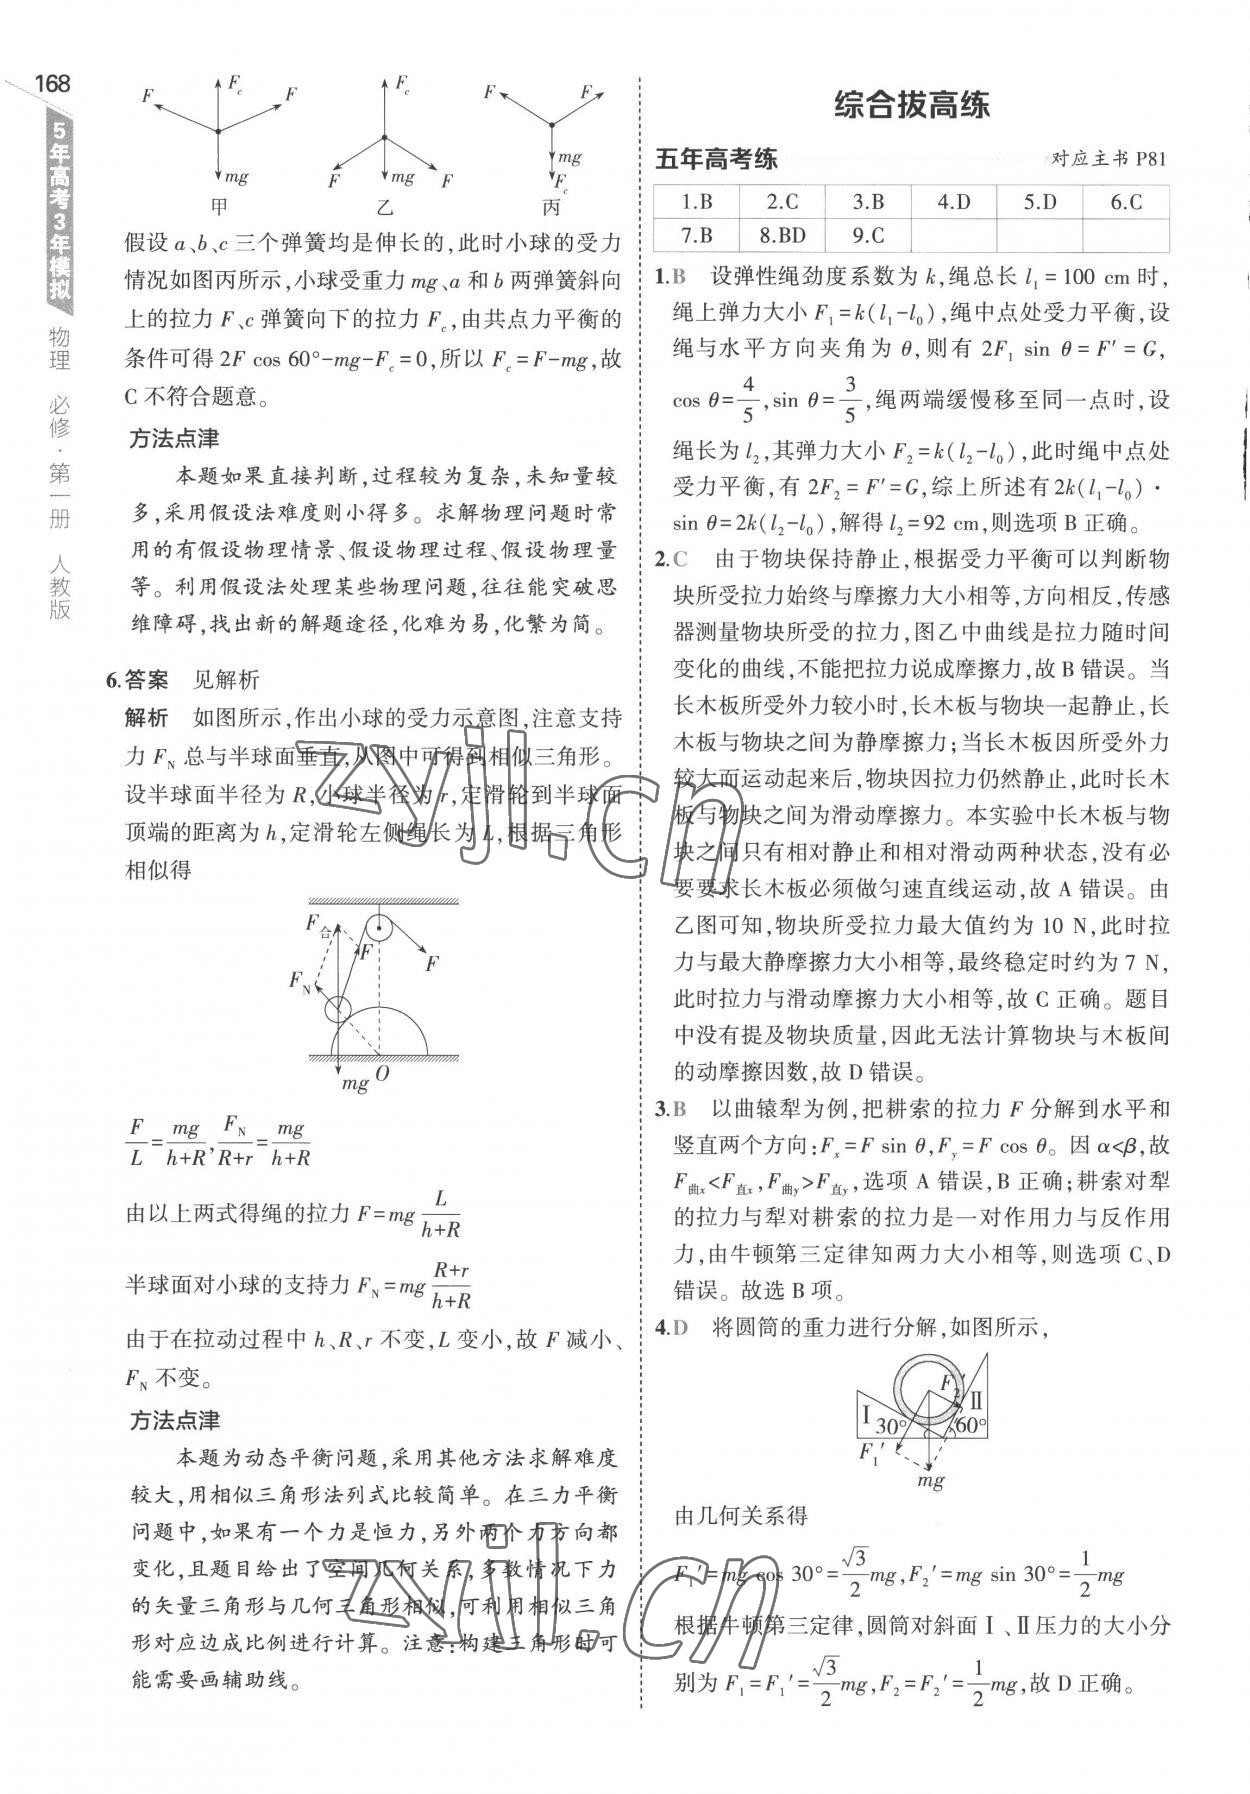 168
5年高考3年模拟
物理 必修·第一册 人教版
F F_c F mg 甲
F_c F mg F 乙
F F mg F_c 丙
假设 a、b、c 三个弹簧均是伸长的,此时小球的受力
情况如图丙所示,小球受重力 mg、a 和 b 两弹簧斜向
上的拉力 F、c 弹簧向下的拉力 F_c,由共点力平衡的
条件可得 2F cos 60°-mg-F_c=0,所以 F_c=F-mg,故
C 不符合题意。
方法点津
本题如果直接判断,过程较为复杂,未知量较
多,采用假设法难度则小得多。求解物理问题时常
用的有假设物理情景、假设物理过程、假设物理量
等。利用假设法处理某些物理问题,往往能突破思
维障碍,找出新的解题途径,化难为易,化繁为简。
6.答案 见解析
解析 如图所示,作出小球的受力示意图,注意支持
力 F_N 总与半球面垂直,从图中可得到相似三角形。
设半球面半径为 R,小球半径为 r,定滑轮到半球面
顶端的距离为 h,定滑轮左侧绳长为 L,根据三角形
相似得
F_合 F F F_N mg O
F/L=mg/(h+R),F_N/(R+r)=mg/(h+R)
由以上两式得绳的拉力 F=mg L/(h+R)
半球面对小球的支持力 F_N=mg (R+r)/(h+R)
由于在拉动过程中 h、R、r 不变,L 变小,故 F 减小、
F_N 不变。
方法点津
本题为动态平衡问题,采用其他方法求解难度
较大,用相似三角形法列式比较简单。在三力平衡
问题中,如果有一个力是恒力,另外两个力方向都
变化,且题目给出了空间几何关系,多数情况下力
的矢量三角形与几何三角形相似,可利用相似三角
形对应边成比例进行计算。注意:构建三角形时可
能需要画辅助线。
综合拔高练
五年高考练 对应主书 P81
1.B 2.C 3.B 4.D 5.D 6.C
7.B 8.BD 9.C
1.B 设弹性绳劲度系数为 k,绳总长 l₁=100 cm 时,
绳上弹力大小 F₁=k(l₁-l₀),绳中点处受力平衡,设
绳与水平方向夹角为 θ,则有 2F₁ sin θ=F'=G,
cos θ=4/5,sin θ=3/5,绳两端缓慢移至同一点时,设
绳长为 l₂,其弹力大小 F₂=k(l₂-l₀),此时绳中点处
受力平衡,有 2F₂=F'=G,综上所述有2k(l₁-l₀)·
sin θ=2k(l₂-l₀),解得 l₂=92 cm,则选项 B 正确。
2.C 由于物块保持静止,根据受力平衡可以判断物
块所受拉力始终与摩擦力大小相等,方向相反,传感
器测量物块所受的拉力,图乙中曲线是拉力随时间
变化的曲线,不能把拉力说成摩擦力,故 B 错误。当
长木板所受外力较小时,长木板与物块一起静止,长
木板与物块之间为静摩擦力;当长木板因所受外力
较大而运动起来后,物块因拉力仍然静止,此时长木
板与物块之间为滑动摩擦力。本实验中长木板与物
块之间只有相对静止和相对滑动两种状态,没有必
要要求长木板必须做匀速直线运动,故 A 错误。由
乙图可知,物块所受拉力最大值约为 10 N,此时拉
力与最大静摩擦力大小相等,最终稳定时约为 7 N,
此时拉力与滑动摩擦力大小相等,故 C 正确。题目
中没有提及物块质量,因此无法计算物块与木板间
的动摩擦因数,故 D 错误。
3.B 以曲辕犁为例,把耕索的拉力 F 分解到水平和
竖直两个方向:F_x=F sin θ,F_y=F cos θ。因 α<β,故
F_曲x<F_直x,F_曲y>F_直y,选项 A 错误,B 正确;耕索对犁
的拉力与犁对耕索的拉力是一对作用力与反作用
力,由牛顿第三定律知两力大小相等,则选项 C、D
错误。故选 B 项。
4.D 将圆筒的重力进行分解,如图所示,
Ⅰ 30° F₂' Ⅱ 60° F₁' mg
由几何关系得
F₁'=mg cos 30°=√3/2 mg,F₂'=mg sin 30°=1/2 mg
根据牛顿第三定律,圆筒对斜面Ⅰ、Ⅱ压力的大小分
别为 F₁=F₁'=√3/2 mg,F₂=F₂'=1/2 mg,故 D 正确。
zyjl.cn
zyjl.cn